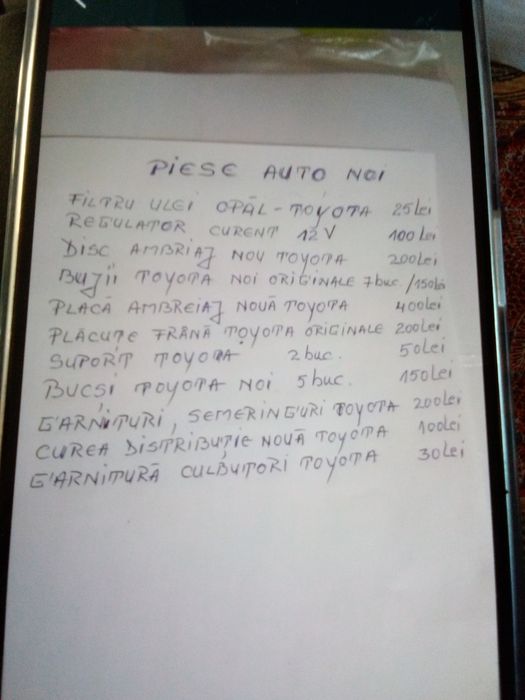 PIESE AUTO NOI
FILTRU ULEI OPĂL - TOYOTA 25 Lei
REGULATOR CURENT 12 V 100 Lei
DISC AMBRIAJ NOU TOYOTA 200 Lei
BUJII TOYOTA NOI ORIGINALE 7 buc./150 Lei
PLACĂ AMBREIAJ NOUĂ TOYOTA 400 Lei
PLĂCUȚE FRÂNĂ TOYOTA ORIGINALE 200 Lei
SUPORȚI TOYOTA 2 buc. 50 Lei
BUCȘI TOYOTA NOI 5 buc. 150 Lei
GARNITURI, SEMERINGURI TOYOTA 200 Lei
CUREA DISTRIBUȚIE NOUĂ TOYOTA 100 Lei
GARNITURĂ CULBUTORI TOYOTA 30 Lei